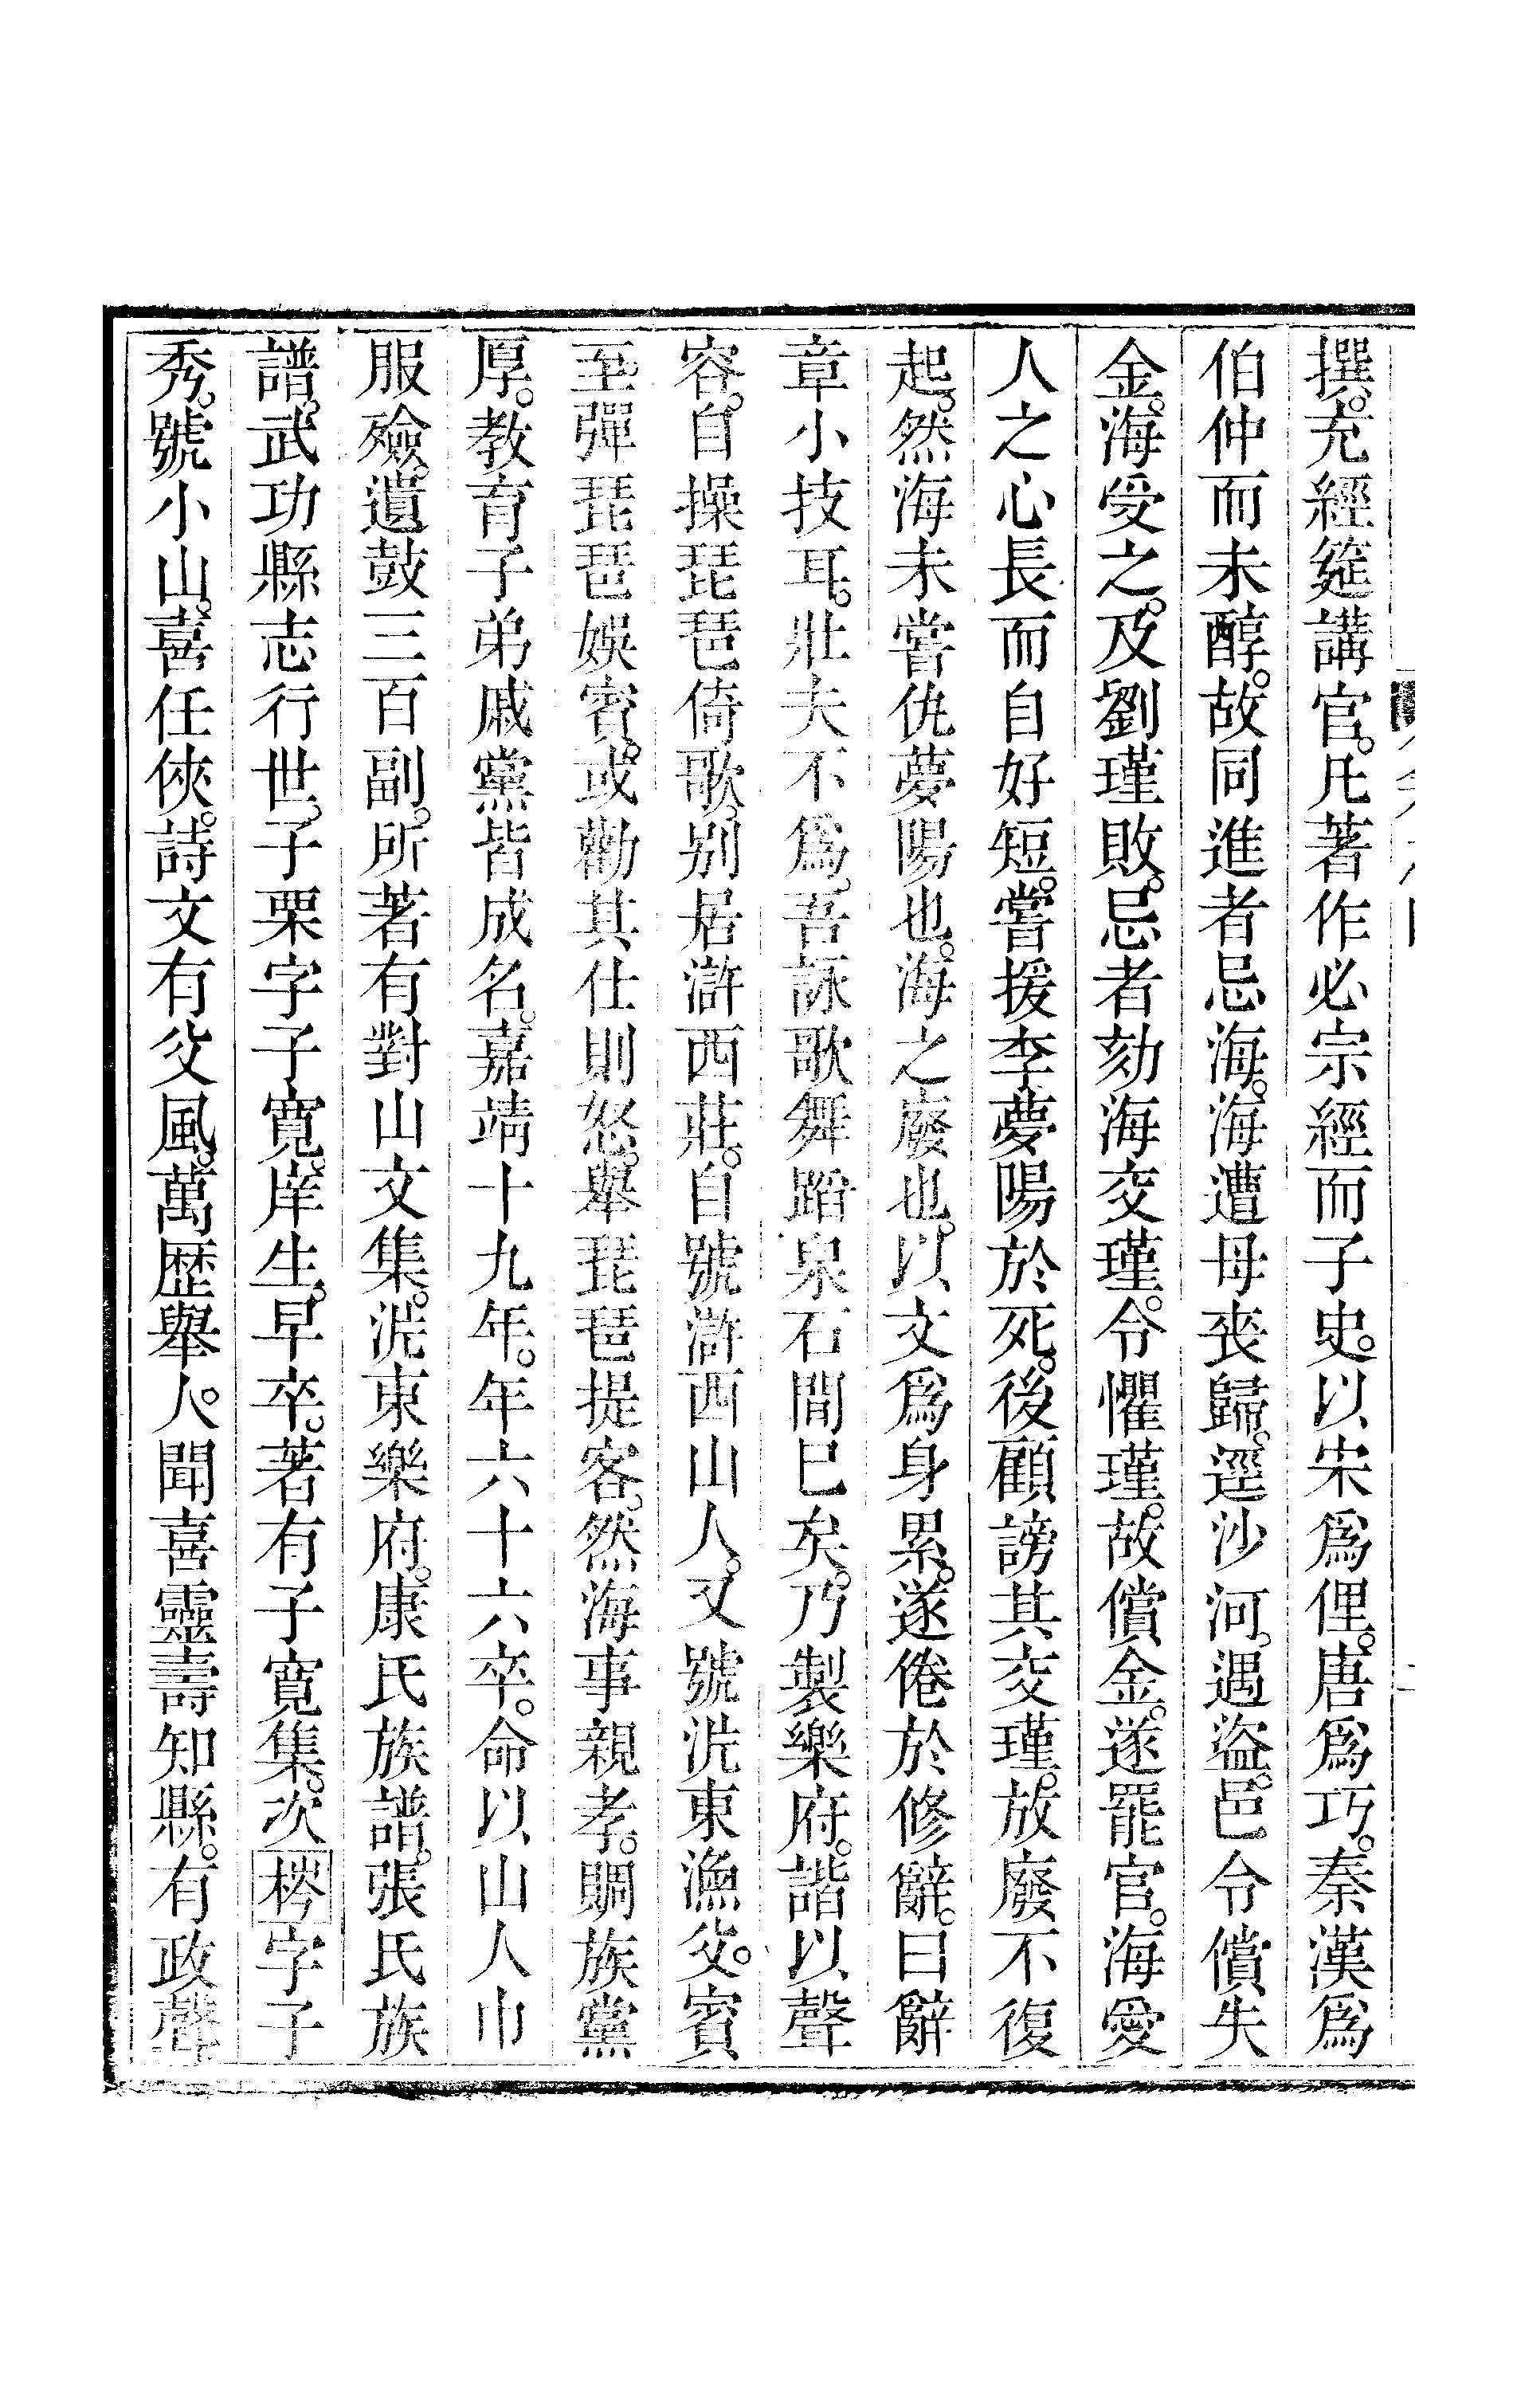 撰。充經筵講官。凡著作必宗經而子史。以宋爲俚。唐爲巧。秦漢爲
伯仲而未醇。故同進者忌海。海遭母喪歸。逕沙河。遇盜。邑令償失
金。海受之。及劉瑾敗。忌者劾海交瑾。令懼瑾。故償金。遂罷官。海愛
人之心長而自好短。嘗援李夢陽於死。後顧謗其交瑾。放廢不復
起。然海未嘗仇夢陽也。海之廢也。以文爲身累。遂倦於修辭。曰辭
章小技耳。壯夫不爲。吾詠歌舞蹈泉石間已矣。乃製樂府。諧以聲
容。自操琵琶倚歌。别居滸西莊。自號滸西山人。又號沜東漁父。賓
至彈琵琶娛賓。或勸其仕則怒。舉琵琶提客。然海事親孝。賙族黨
厚。教育子弟戚黨皆成名。嘉靖十九年。年六十六卒。命以山人巾
服殮。遺鼓三百副。所著有對山文集。沜東樂府。康氏族譜。張氏族
譜。武功縣志行世。子栗字子寬。庠生。早卒。著有子寬集。次梣字子
秀。號小山。喜任俠。詩文有父風。萬歷舉人。聞喜靈壽知縣。有政聲